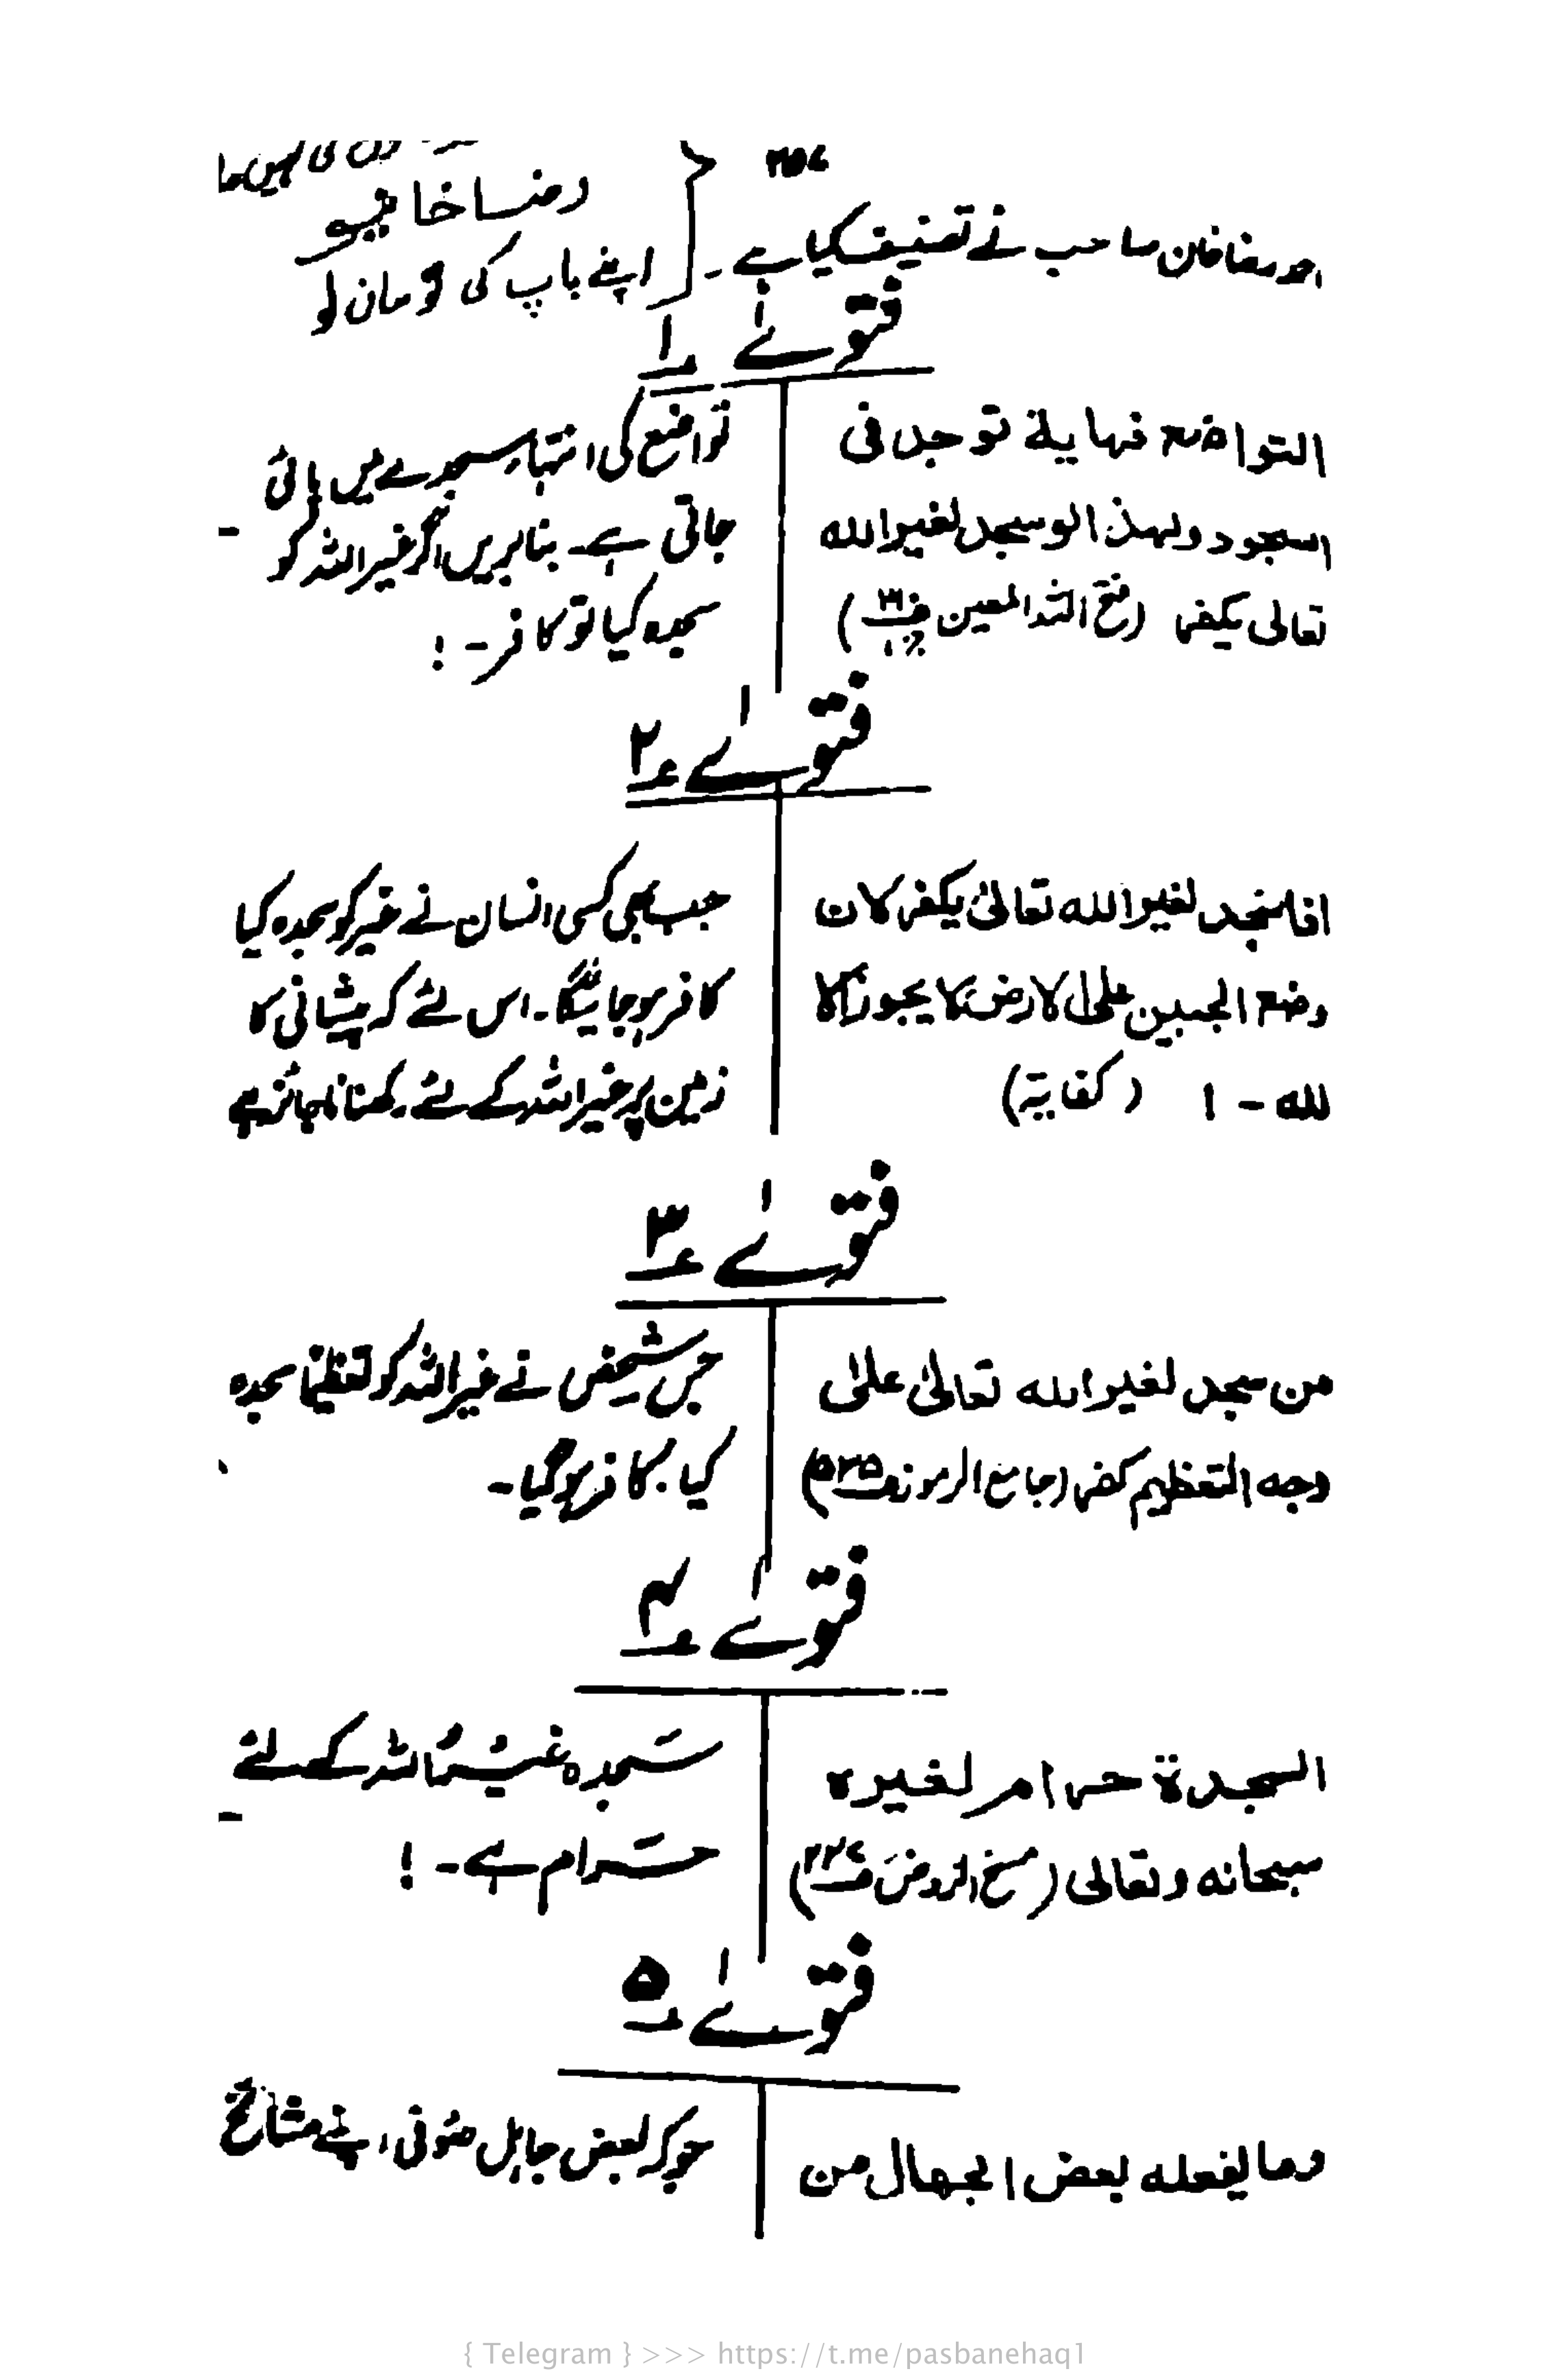 احمد رضا خان صاحب نے تصنیف کیا ہے۔
رضا خانیو
اپنے باپ کی تو مان لو
فتوےٰ ۱
التواضع فنهاية توجد فی
السجود ولهذا لو سجد لغیر الله
تعالی یکفر (فتح اللہ المعین)
تواضع کی انتہا سجدے میں پائی
جاتی ہے۔ بنابریں اگر غیر اللہ کو
سجدہ کیا تو کافر۔!
فتوےٰ ۲
اذا سجد لغیر الله تعالیٰ یکفر لان
وضع الجبین علی الارض لا یجوز الا
لله - ! (کفایۃ)
جب بھی کسی انسان نے غیر کو سجدہ کیا
کافر ہو جائیگا۔ اس لئے کہ پیشانی کا
زمین پر غیر اللہ کے لئے رکھنا ناجائز ہے
فتوےٰ ۳
من سجد لغیر الله تعالیٰ علیٰ
وجه التعظیم کفر (جامع الرموز ص۵۳۵)
جس شخص نے غیر اللہ کو تعظیماً سجدہ
کیا۔ کافر ہو گیا۔
فتوےٰ ۴
السجدة حرام لغیره
سبحانه وتعالی (منح الروض ص۲۲۷)
سجدہ غیر اللہ کے لئے
حرام ہے۔!
فتوےٰ ۵
وما یفعله بعض الجهال من
جو کہ بعض جاہل صوفی اپنے مشائخ
{ Telegram } >>> https://t.me/pasbanehaq1